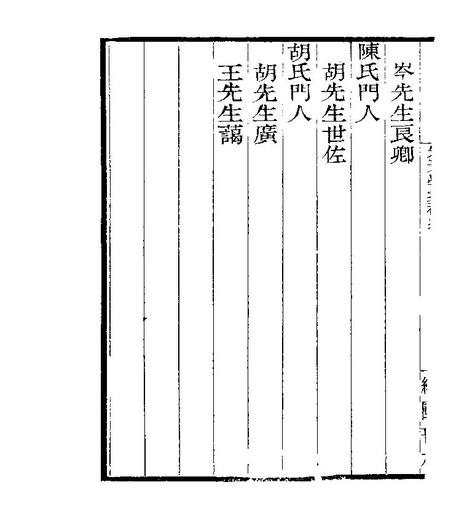 岑先生良卿
陳氏門人
胡先生世佐
胡氏門人
胡先生廣
王先生藹